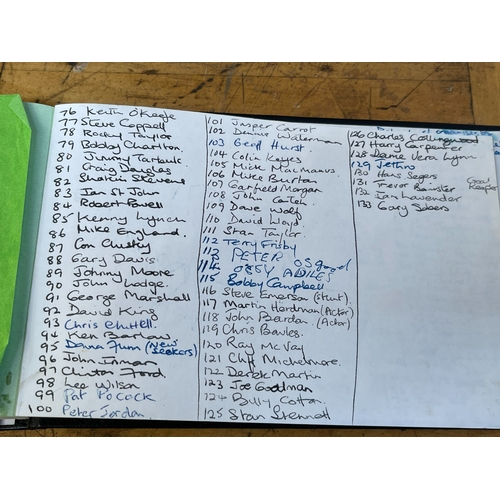 76 Keith O'Keefe
77 Steve Coppell
78 Rocky Taylor
79 Bobby Charlton
80 Jimmy Tarbuck
81 Craig Douglas
82 Shakin Stevens
83 Ian St John
84 Robert Powell
85 Kenny Lynch
86 Mike England
87 Con Cluskey
88 Gary Davis
89 Johnny Moore
90 John Lodge
91 George Marshall
92 David King
93 Chris
94 Ken Barlow
95 Danna (New Seekers)
96 John
97 Clinton Ford
98 Lee Wilson
99 Pat Pocock
100 Peter Jordan
101 Jasper Carrot
102 Dennis Waterman
103 Geoff Hurst
104 Colin Keyes
105 Mick MacManus
106 Mike Burton
107 Garfield Morgan
108 John
109 Dave Wolf
110 David Lloyd
111 Stan Taylor
112 Terry Frisby
113 PETER OSgood
114 OSSY ADILES
115 Bobby Campbell
116 Steve Emerson (Stunt)
117 Martin Herdman (Actor)
118 John Bardon (Actor)
119 Chris Bowles
120 Ray McVay
121 Cliff Michelmore
122 Derek Martin
123 Joe Goodman
124 Billy Cotton
125 Stan Stennett
126 Charles
127 Harry Carpenter
128 Dame Vera Lynn
129 Jethro
130 Hans Segers Goal Keeper
131 Trevor Bannister
132 Ian Lavender
133 Gary Sobers